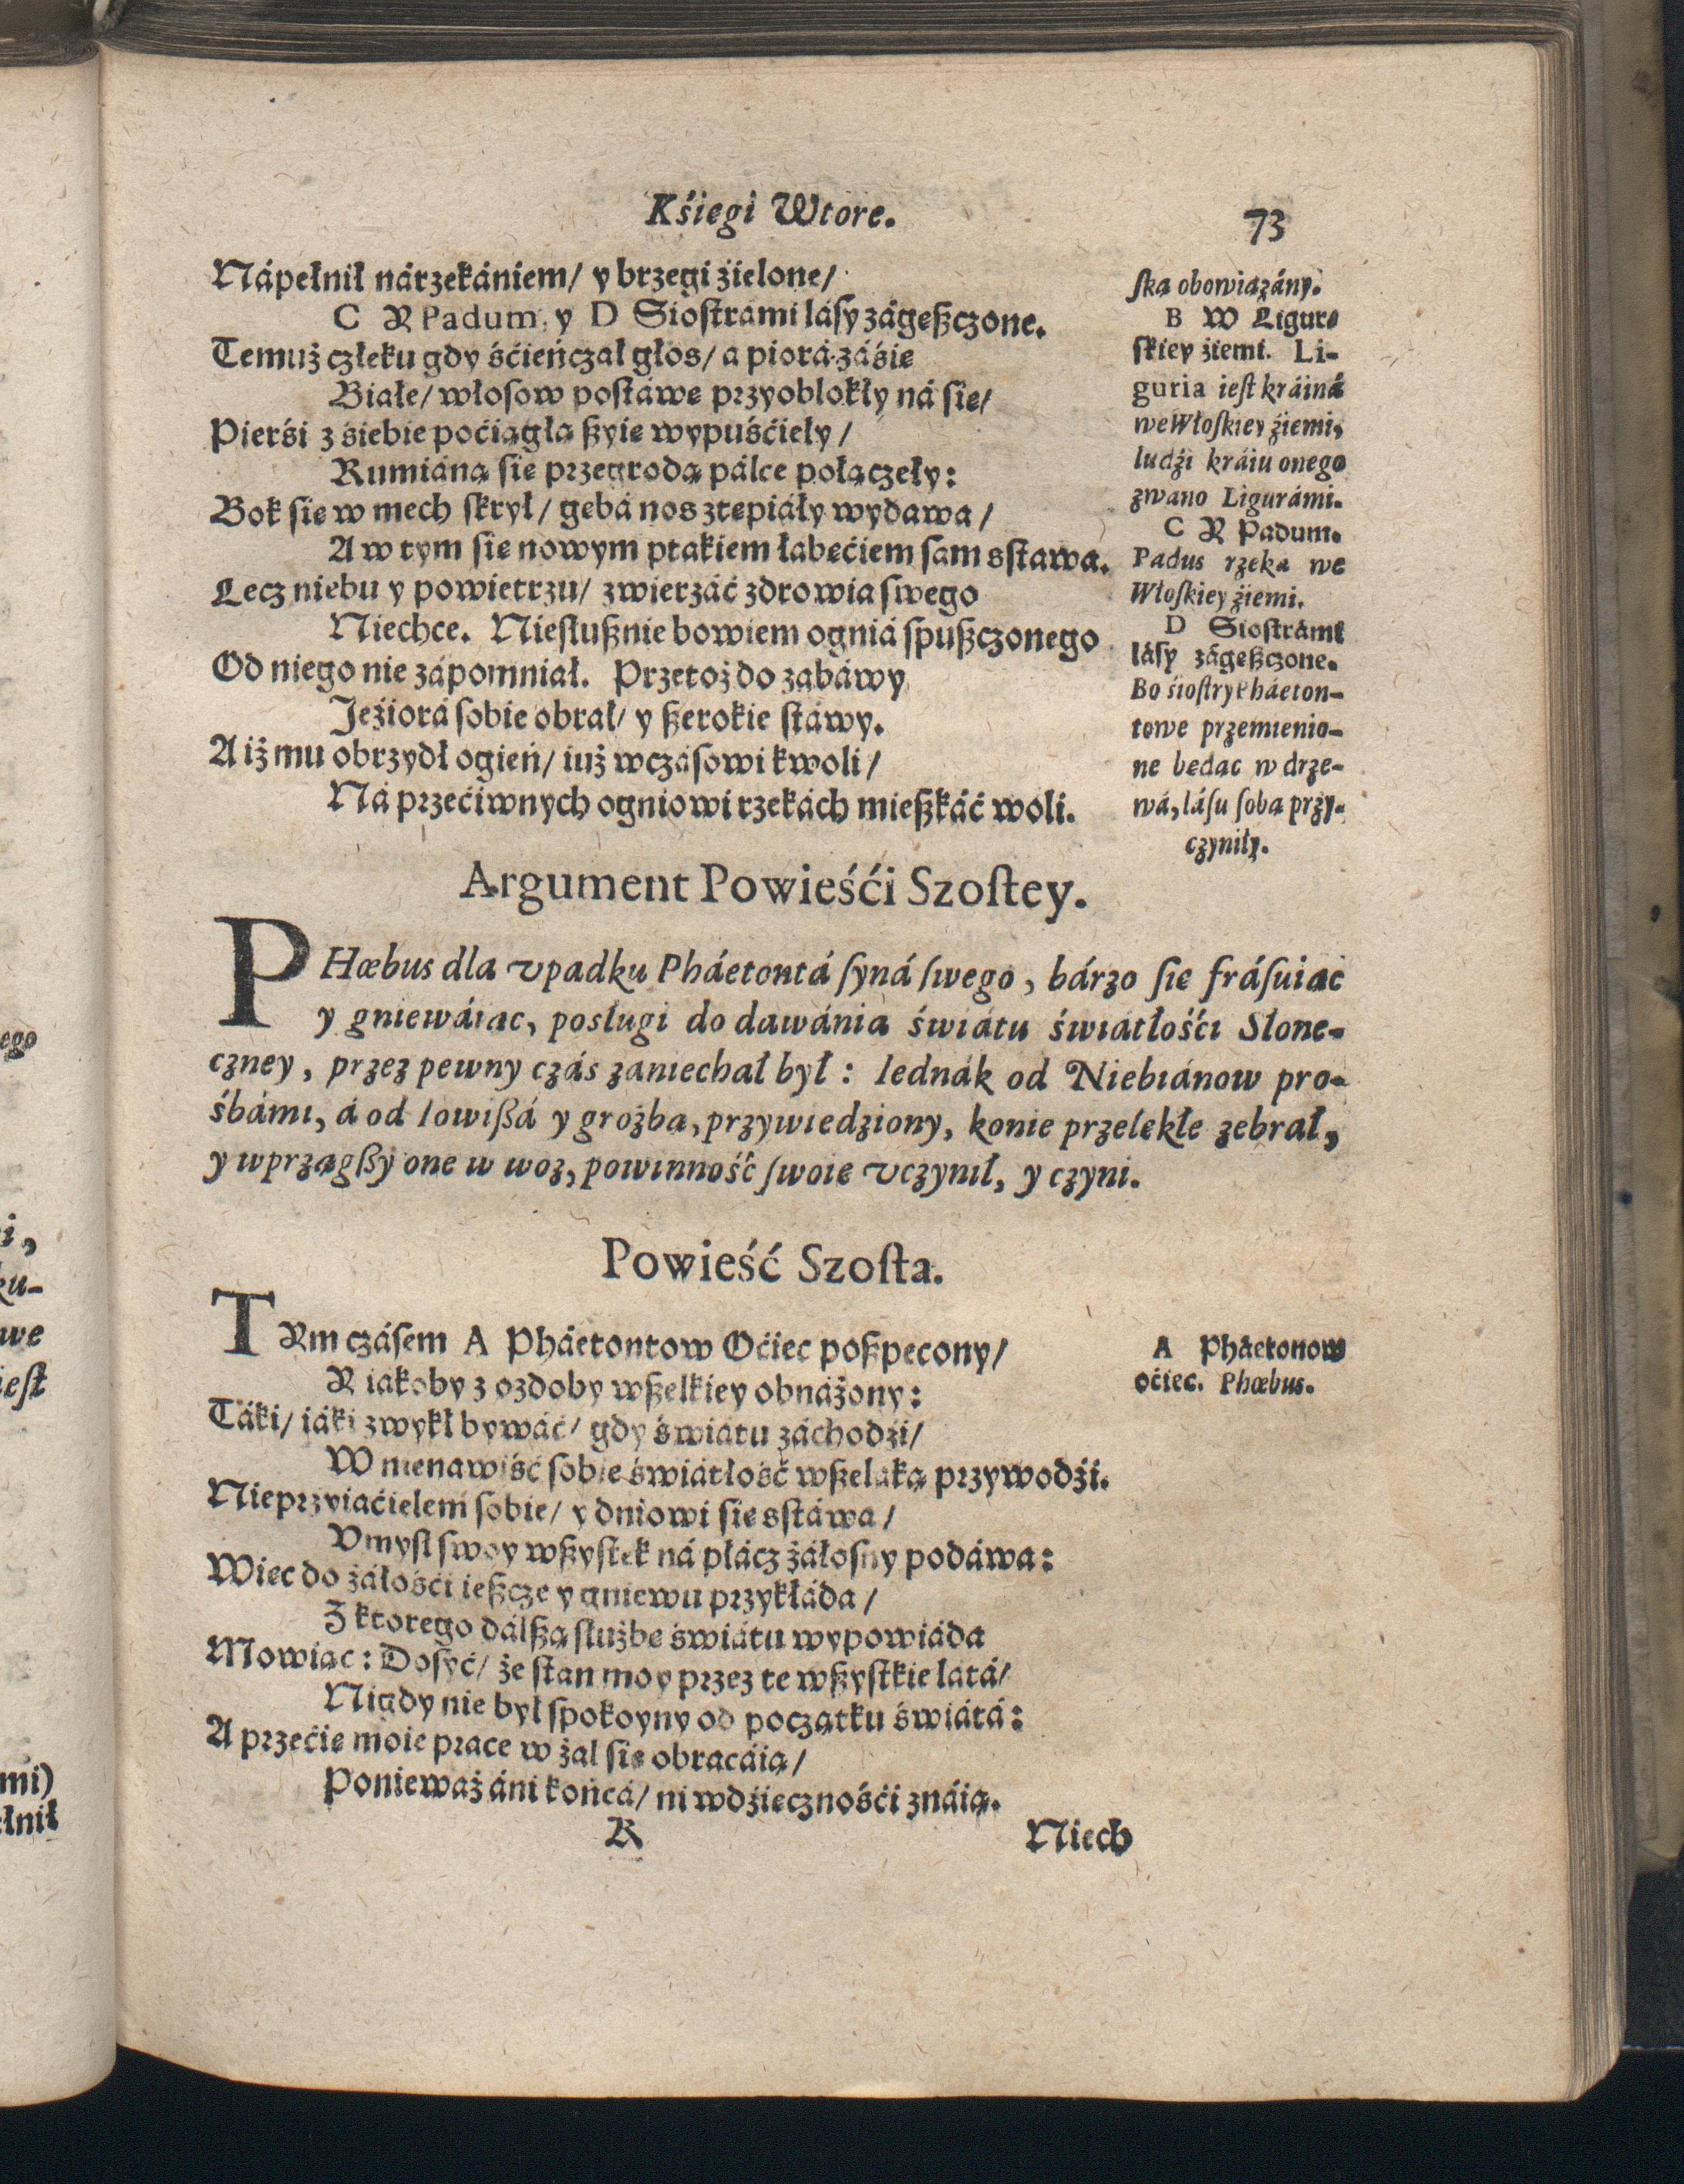 Kśiegi Wtore.
73
Nápełnił nárzekániem/ y brzegi źielone/
C Y Padum, y D Siostrámi lásy zágęszczone.
Temuż człeku gdy śćieńczał głos/ a piorá zásie
Białe/ włosow postáwe przyoblokły ná sie/
Pierśi z siebie poćiągła szyie wypuśćieły/
Rumiáną sie przegrodą pálce połączeły:
Bok sie w mech skrył/ gębá nos ztępiáły wydawa/
A w tym sie nowym ptakiem łabęćiem sam sstawa.
Lecz niebu y powietrzu/ zwierzáć zdrowia swego
Niechce. Niesłusznie bowiem ogniá spuszczonego
Od niego nie zápomniał. Przetoż do zabáwy
Jeźiorá sobie obrał/ y szerokie stáwy.
A iż mu obrzydł ogień/ iuż wczásowi kwoli/
Ná przećiwnych ogniowi rzekách mieszkáć woli.
ska obowiązány.
B W Ligur-
skiey źiemi. Li-
guria iest kráiná
we Włoskiey źiemi,
ludźi kráiu onego
zwano Ligurámi.
C Y Padum.
Padus rzeka we
Włoskiey źiemi.
D Siostrámi
lásy zágęszczone.
Bo śiostry Pháeton-
towe przemienio-
ne bedac w drze-
wá, lásu sobą przy-
czyniły.
Argument Powieśći Szostey.
PHœbus dla vpadku Pháetontá syná swego, bárzo sie frásuiac
y gniewáiac, posługi do dawánia świátu świátłośći Słone-
czney, przez pewny czás zaniechał był: Iednák od Niebiánow pro-
śbámi, á od Iowiszá y groźba, przywiedziony, konie przelękłe zebrał,
y wprzągszy one w woz, powinność swoie vczynił, y czyni.
Powieść Szosta.
TYm czásem A Pháetontow Oćiec poszpecony/
Y iákoby z ozdoby wszelkiey obnáżony:
Táki/ iáki zwykł bywáć/ gdy świátu záchodźi/
W nienawiść sobie świátłość wszeláką przywodźi.
Nieprzyiaćielem sobie/ y dniowi sie sstáwa/
Vmysł swoy wszystek ná płácz żáłosny podáwa:
Wiec do żáłośći ieszcze y gniewu przykłáda/
Z ktorego dálszą służbe świátu wypowiáda
Mowiac: Dosyć/ że stan moy przez te wszystkie latá/
Nigdy nie był spokoyny od początku świátá:
A przećie moie prace w żal sie obracáią/
Ponieważ áni końcá/ ni wdźięcznośći znáią.
A Pháetonow
oćiec. Phœbus.
K
Niech
ego
i,
ku-
we
iest
mi)
ełnił